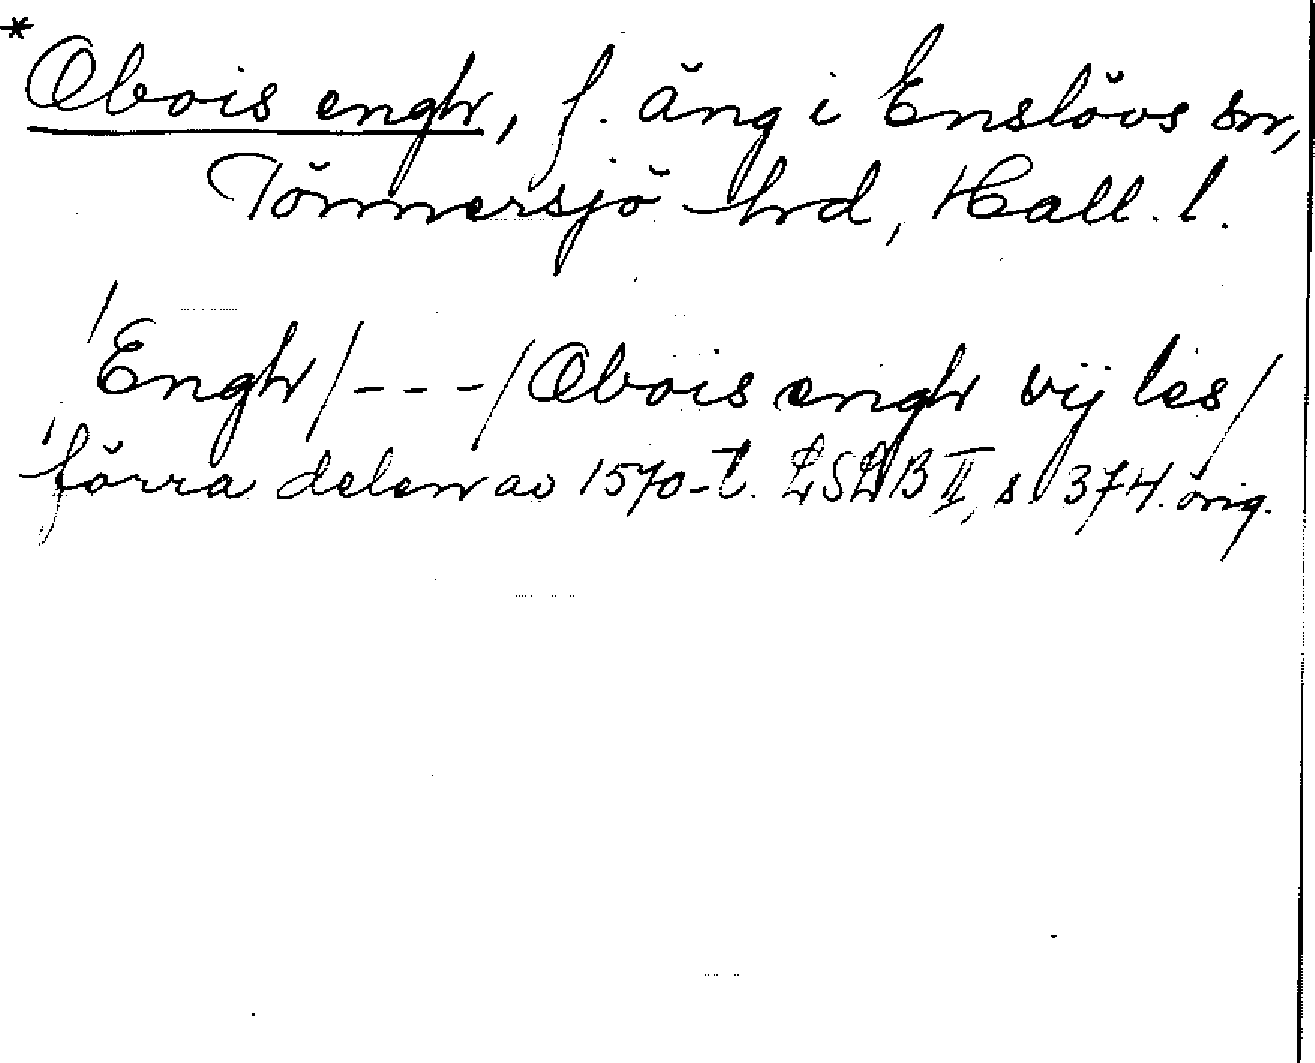 *Obois engh, f. äng i Enslövs sn,
Tönnersjö hd, Hall. l.
/Engh/---/Obois engh vij les/
förra delen av 1570-t. LSLB II, s 374. orig.